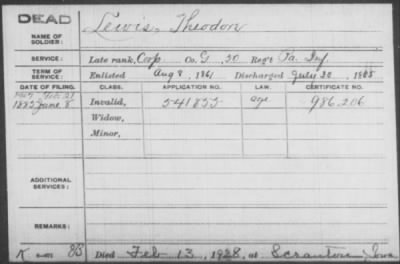 DEAD
NAME OF SOLDIER: Lewis, Theodon
SERVICE: Late rank, Corp Co. G, 50 Reg't Pa. Inf.
TERM OF SERVICE: Enlisted Aug 8, 1861 Discharged July 30, 1865
DATE OF FILING. CLASS. APPLICATION NO. LAW. CERTIFICATE NO.
1907 Feb 27
1885 June 8 Invalid, 541855 age 986,206
Widow,
Minor,
ADDITIONAL SERVICES:
REMARKS:
Died Feb 13, 1928, at Scranton, Iowa